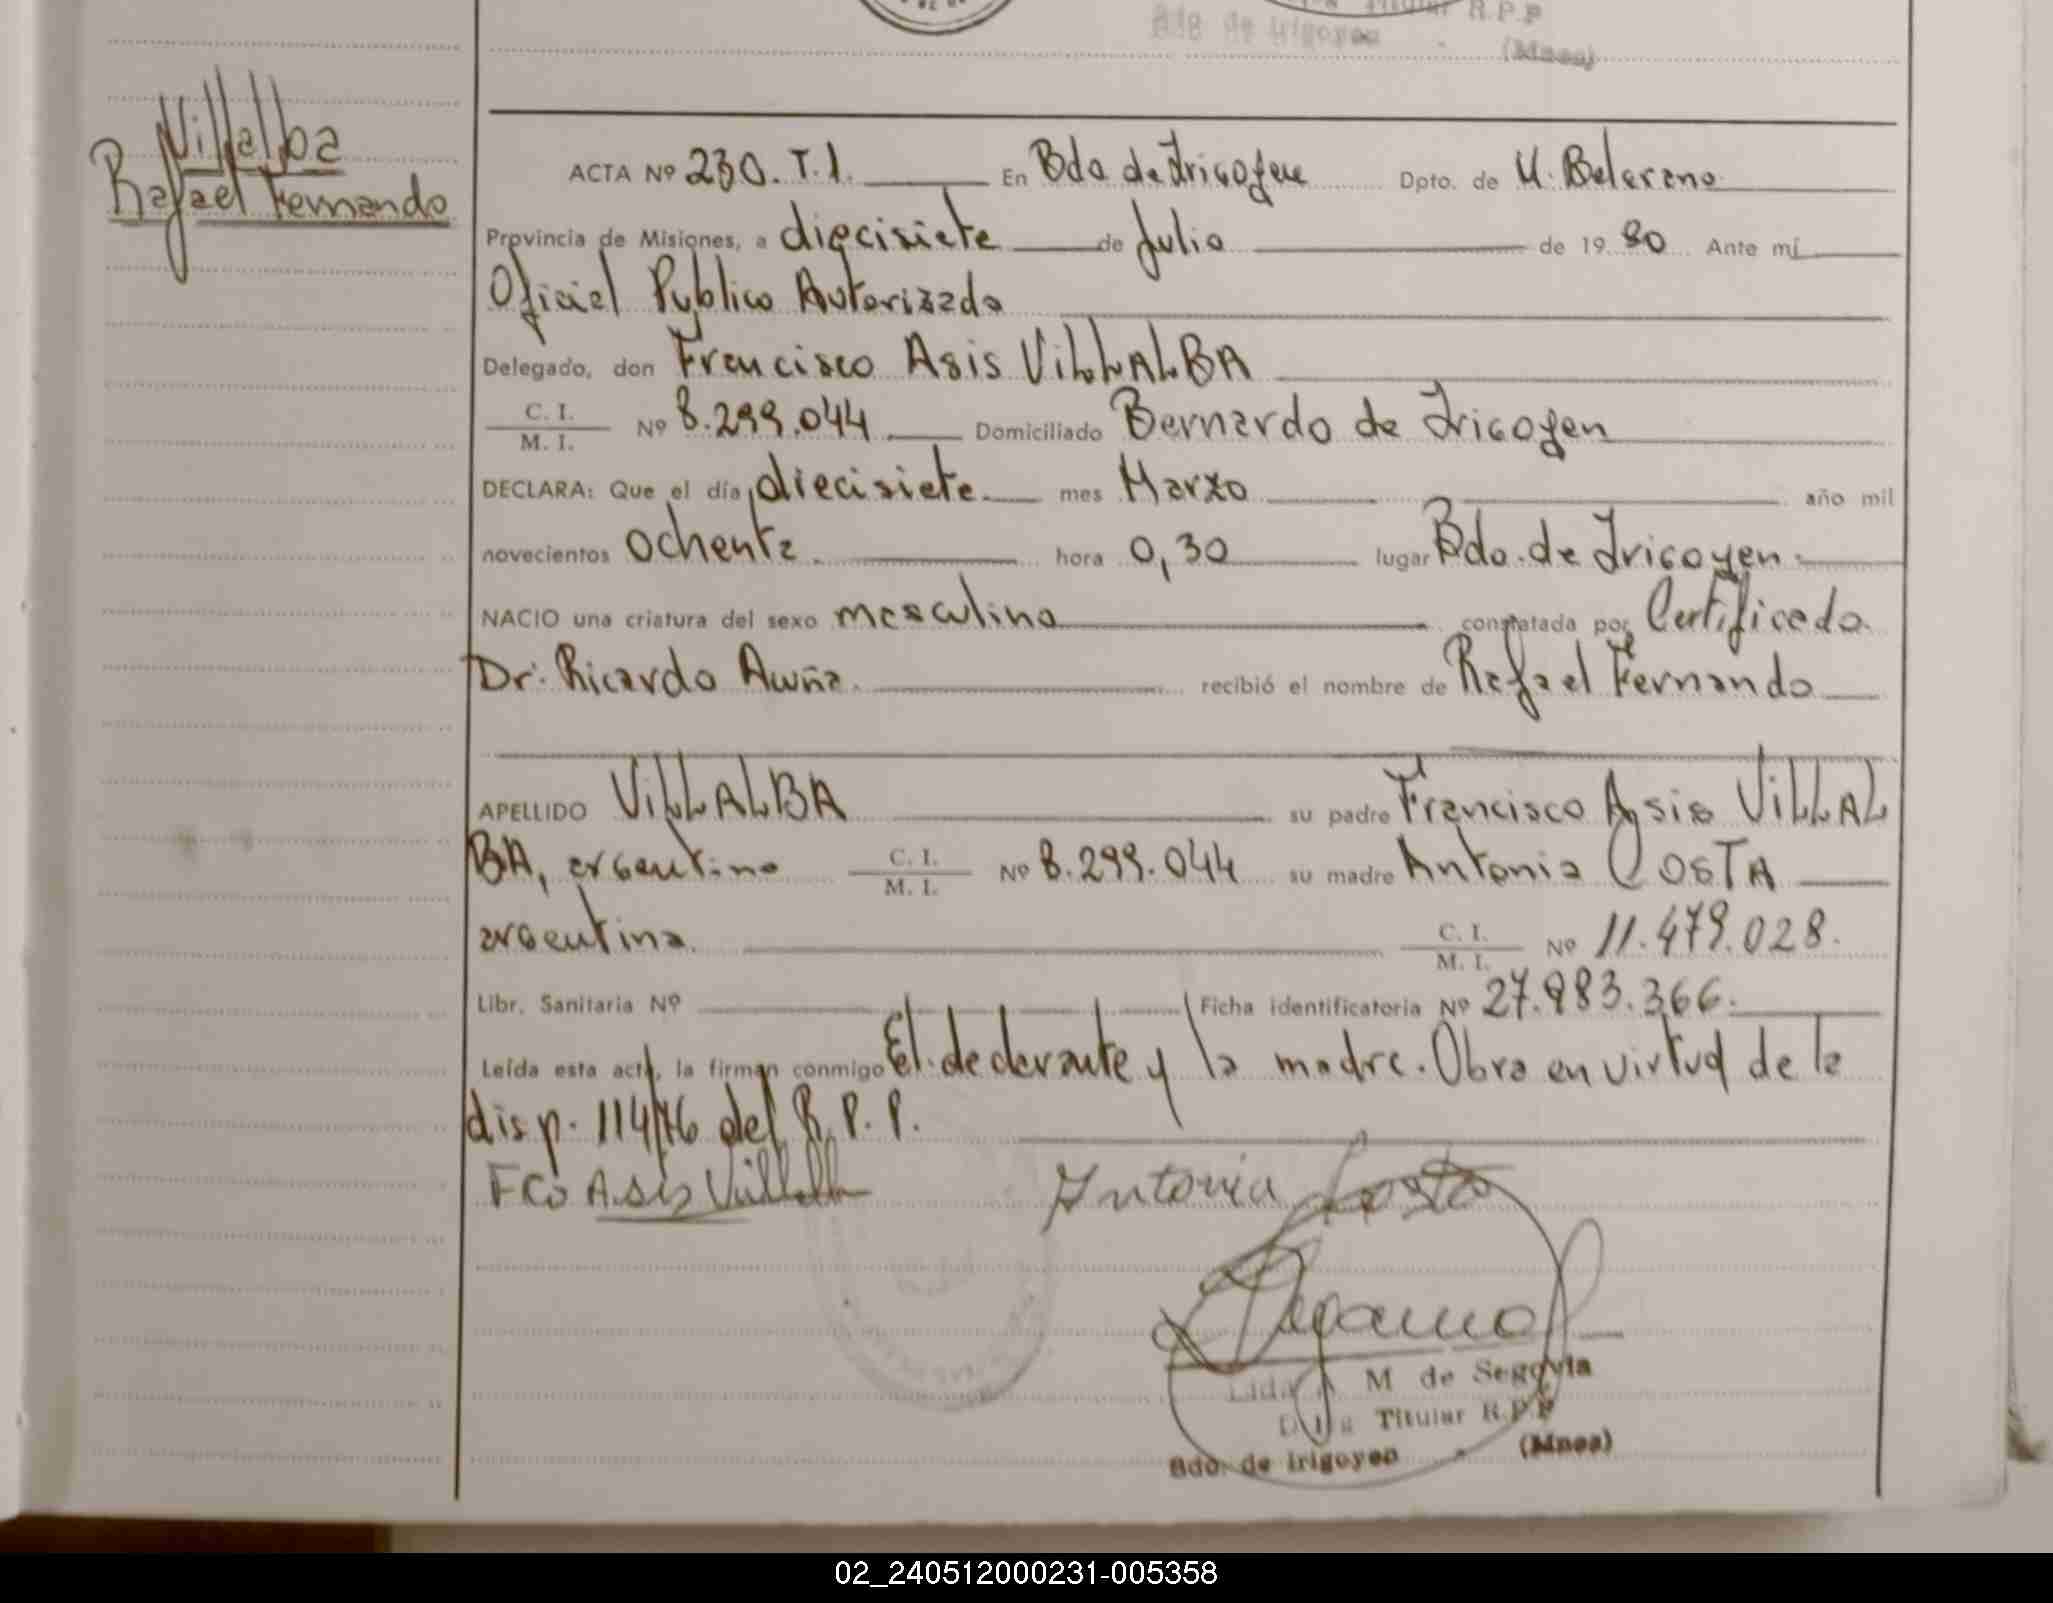 Bdo de Irigoyen - (Mnes)
R.P.P
Villalba
Rafael Fernando
ACTA Nº 230. T.1. En Bdo de Irigoyen Dpto. de M. Belgrano
Provincia de Misiones, a diecisiete de Julio de 1980 Ante mí
Oficial Publico Autorizado
Delegado, don Francisco Asis VILLALBA
C. I. / M. I. Nº 8.299.044 Domiciliado Bernardo de Irigoyen
DECLARA: Que el día diecisiete mes Marzo año mil
novecientos ochenta hora 0,30 lugar Bdo. de Irigoyen
NACIO una criatura del sexo masculino constatada por Certificado
Dr: Ricardo Acuña. recibió el nombre de Rafael Fernando
APELLIDO VILLALBA su padre Francisco Asis VILLAL
BA, argentino C. I. / M. I. Nº 8.299.044 su madre Antonia COSTA
argentina. C. I. / M. I. Nº 11.479.028.
Libr. Sanitaria Nº Ficha identificatoria Nº 27.983.366.
Leída esta acta, la firman conmigo El declarante y la madre. Obra en virtud de la
disp. 114/76 del R. P. P.
Fco Asis Villalba Antonia Costa
M de Segovia
Titular R.P.P
Bdo. de Irigoyen - (Mnes)
02_240512000231-005358